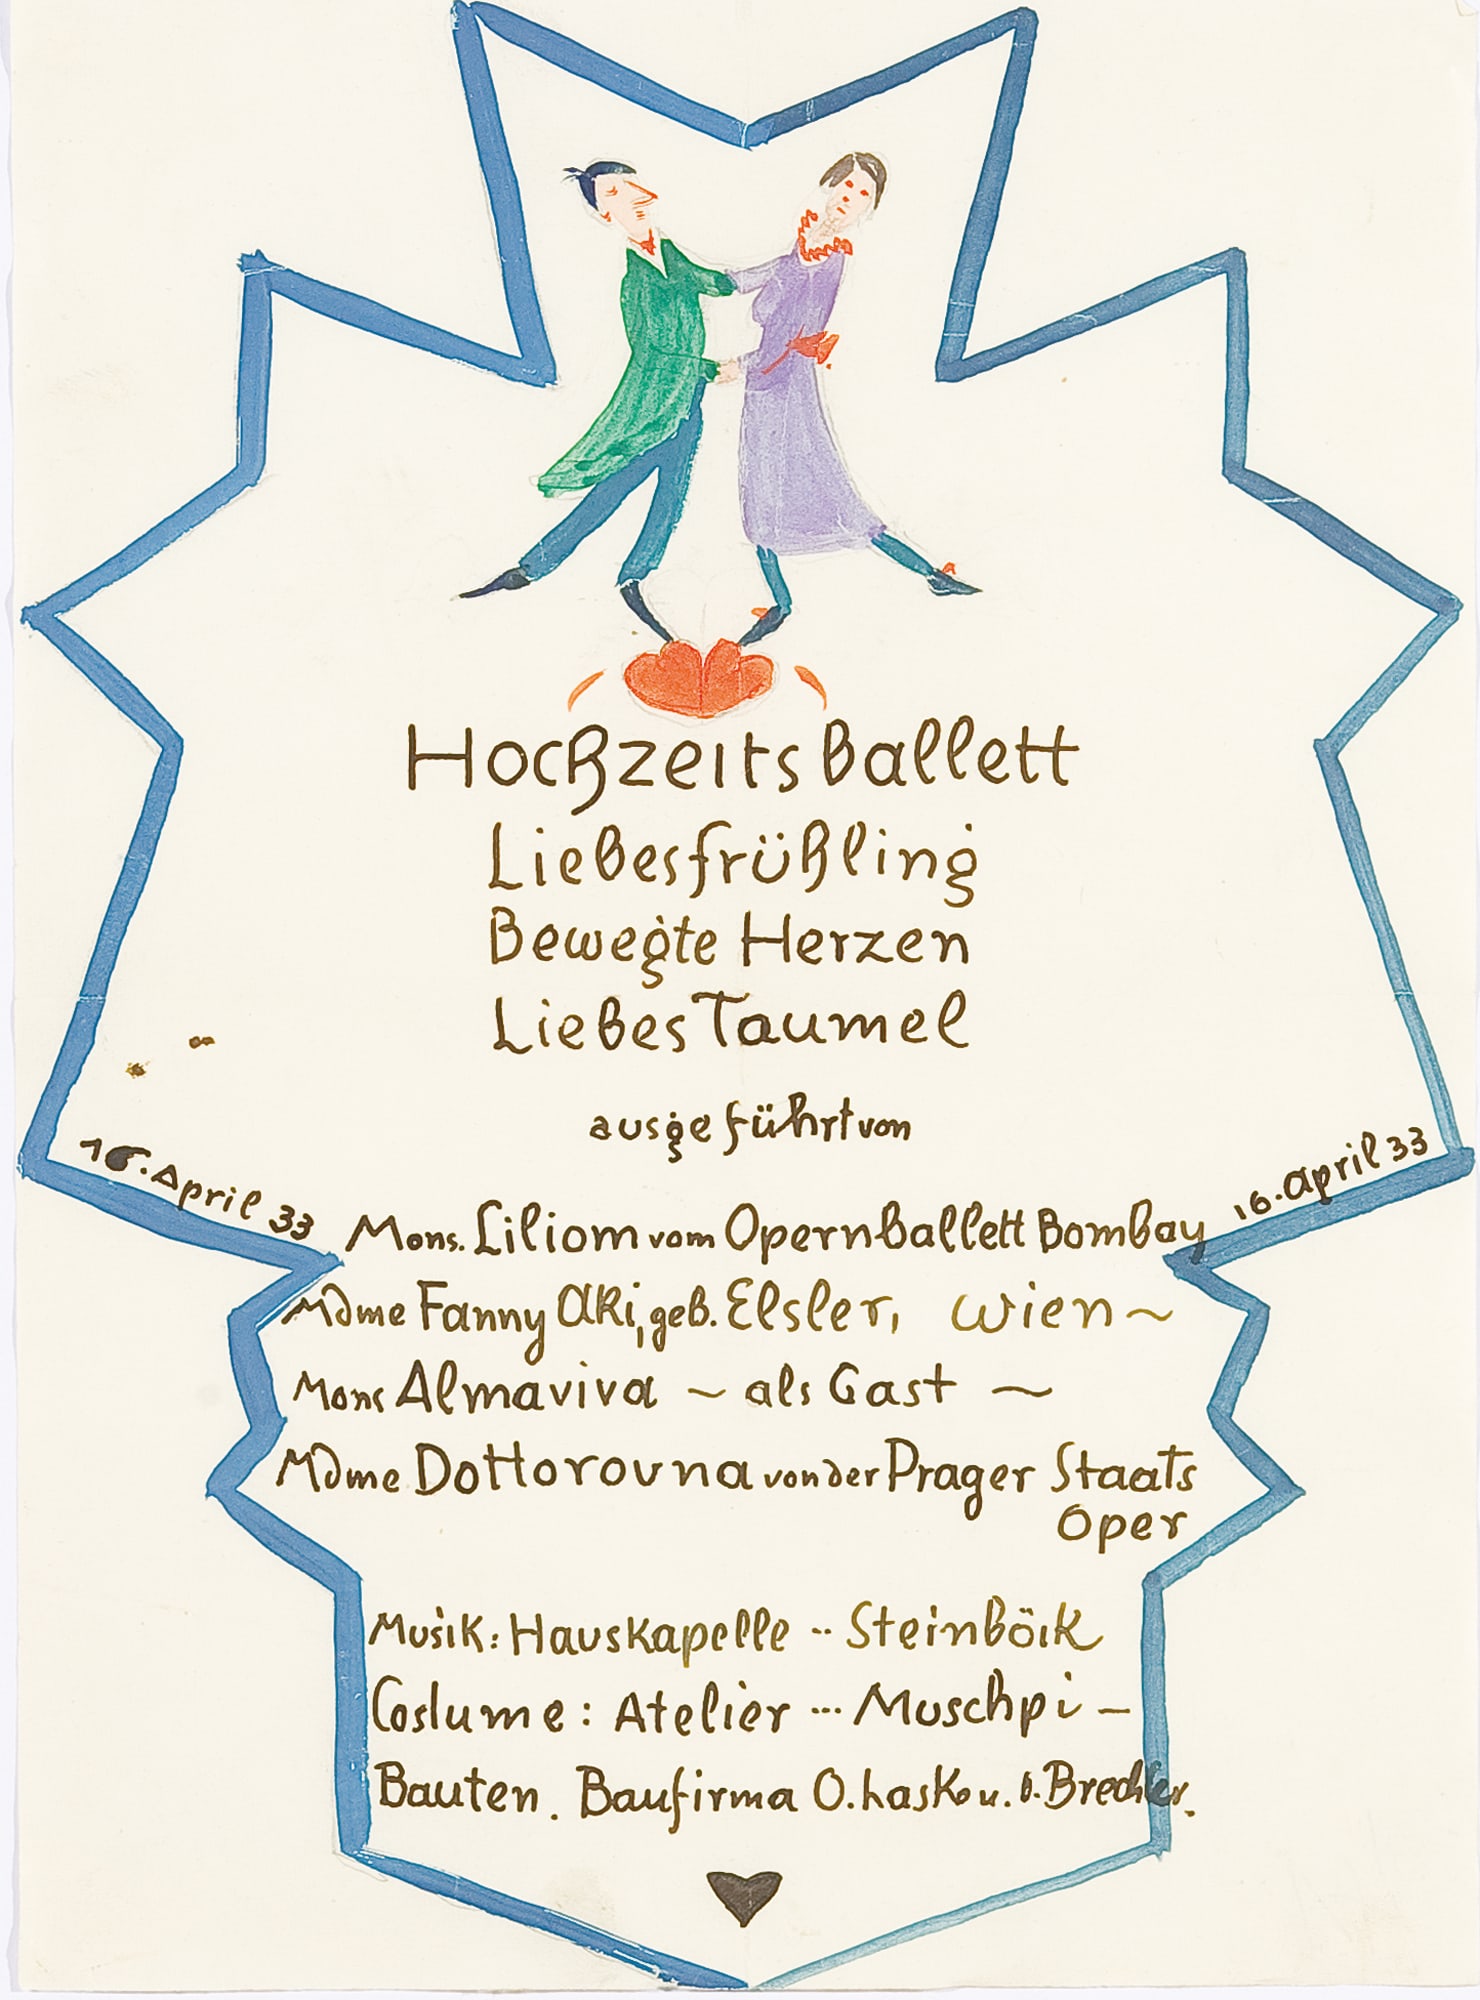 HochzeitsBallett
Liebesfrühling
Bewegte Herzen
LiebesTaumel
ausgeführt von
16. April 33
16. april 33
Mons. Liliom vom OpernBallett Bombay
Mdme Fanny Aki, geb. Elsler, Wien ~
Mons Almaviva ~ als Gast ~
Mdme Dottorovna von der Prager Staats
Oper
Musik: Hauskapelle ·· Steinböck
Costume: Atelier ··· Muschpi –
Bauten. Baufirma O. hasko u. b. Brechler.